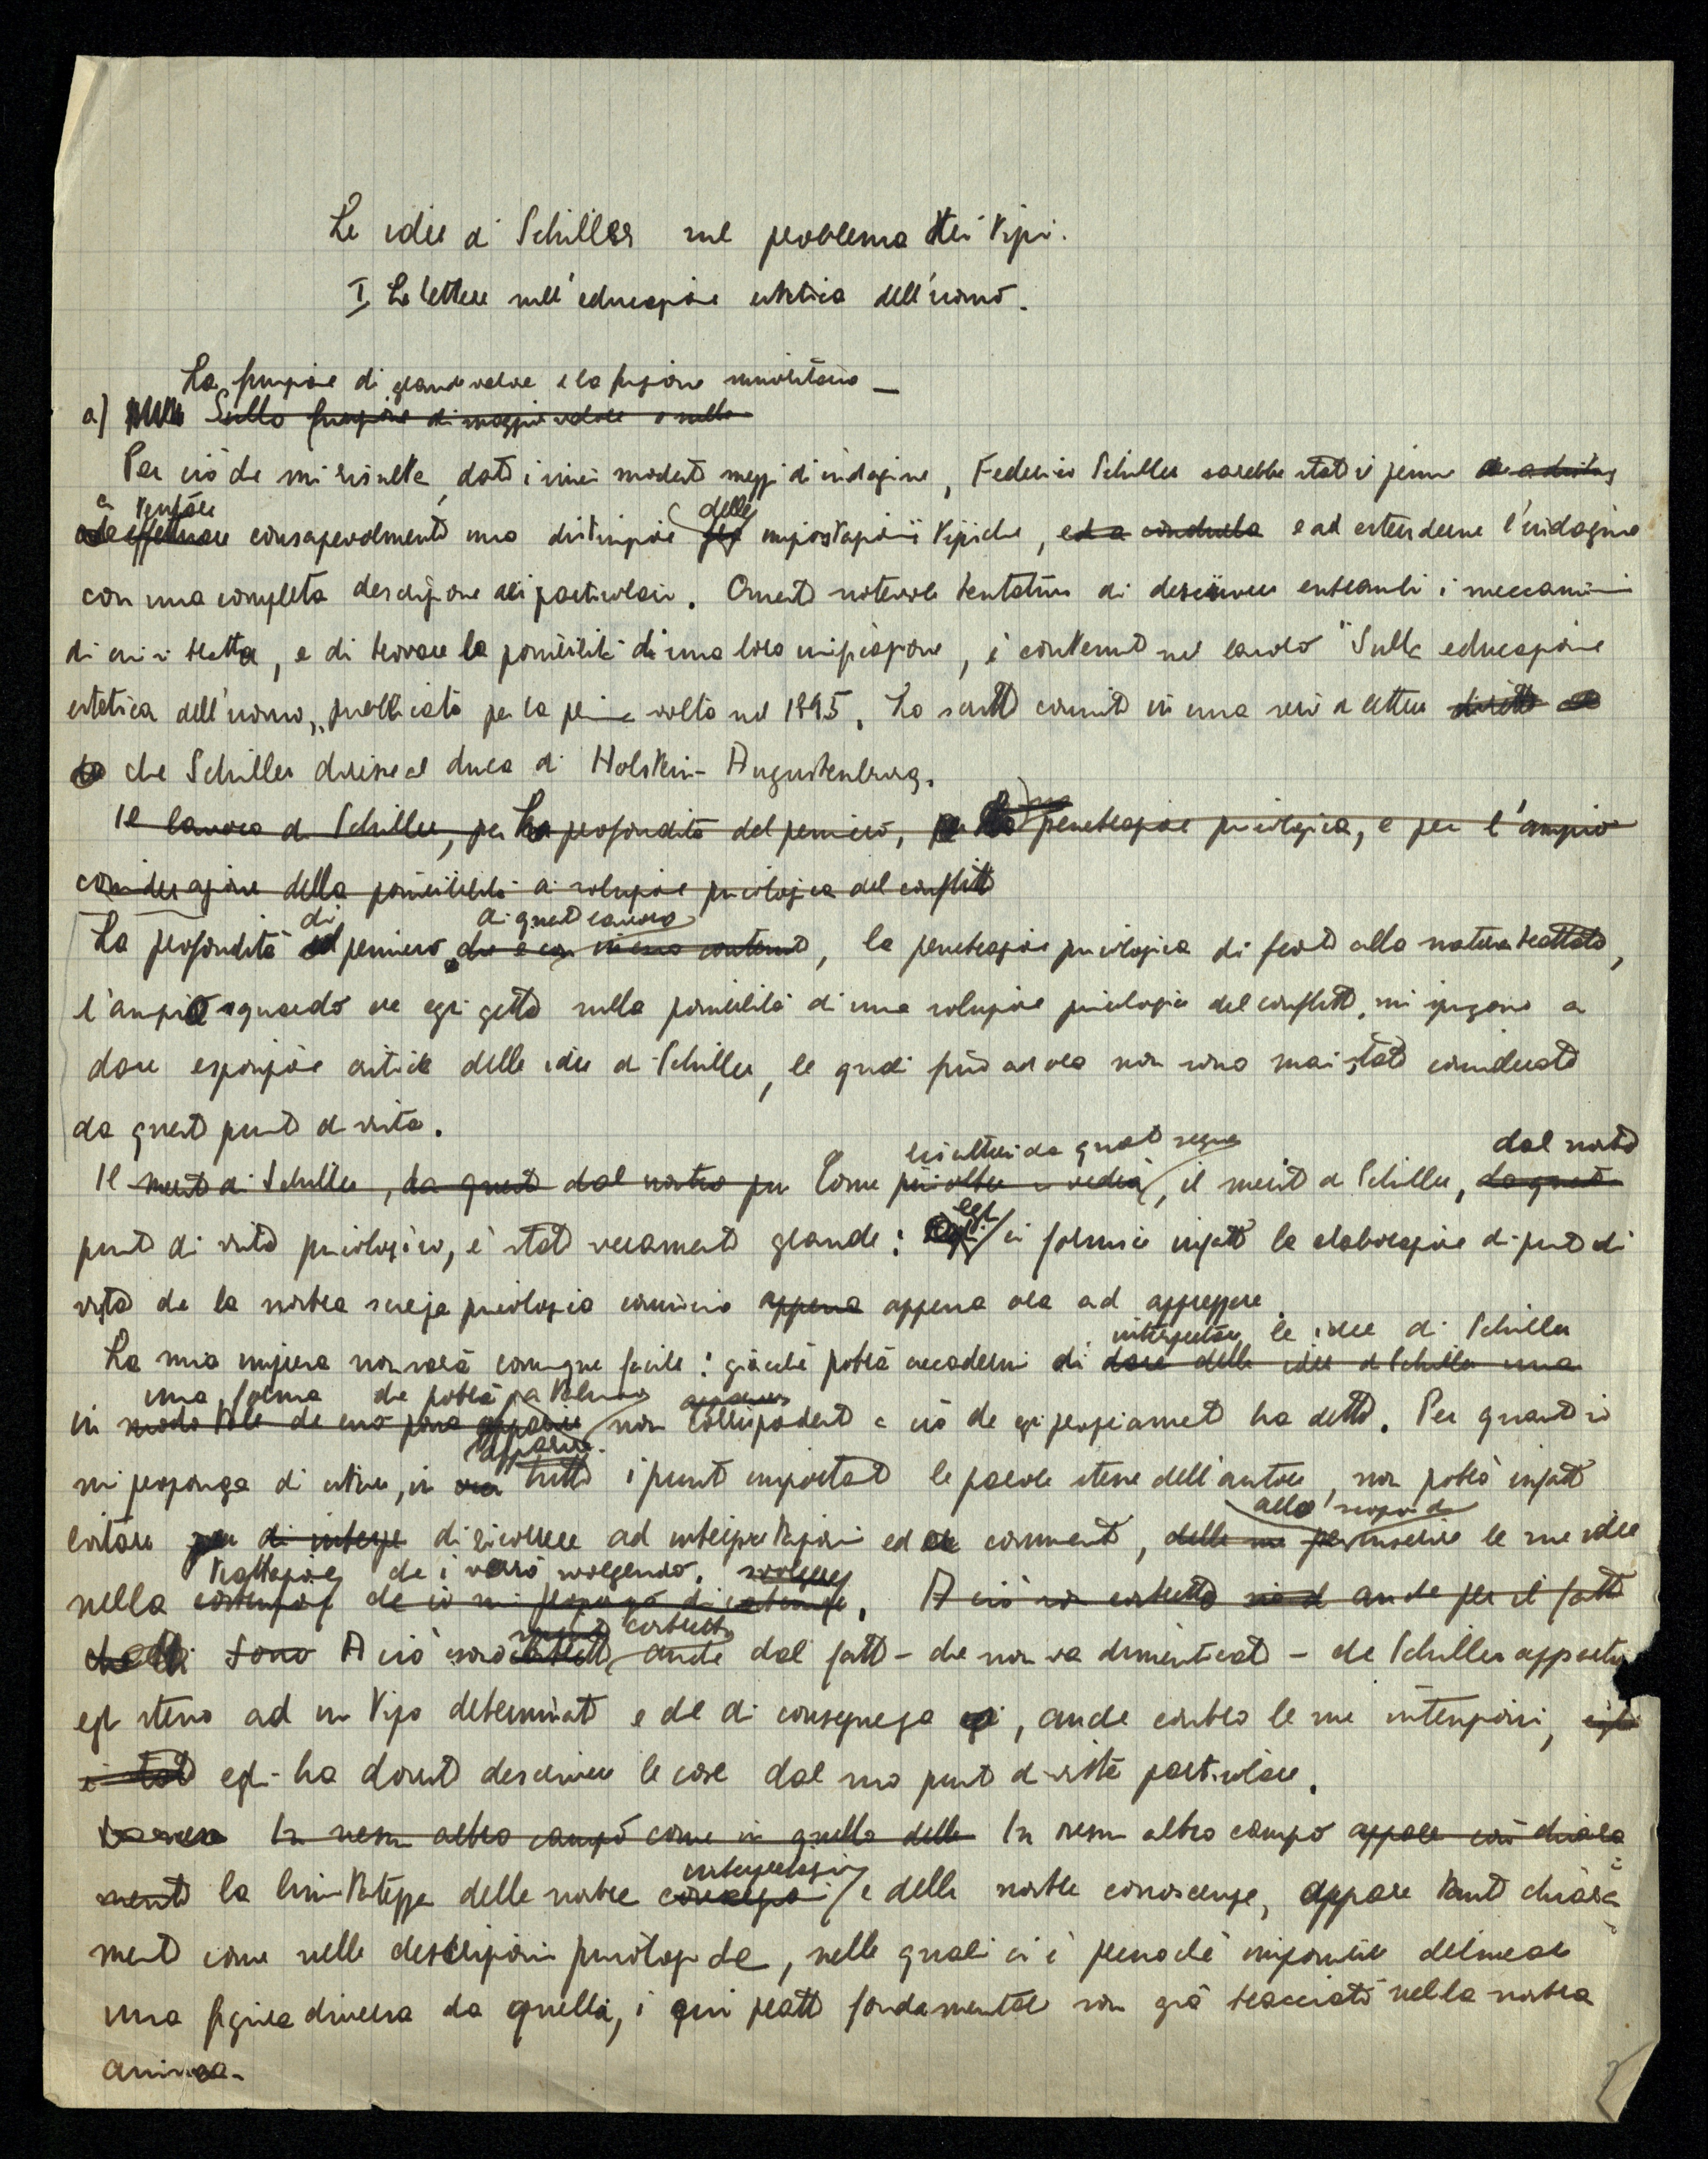 Le idee di Schiller sul problema dei tipi.
I Le lettere sull'educazione estetica dell'uomo.
La funzione di grande valore e la funzione minoritaria —
a) Sulla funzione di maggior valore e sulla
Per ciò che mi risulta, dati i miei modesti mezzi di indagine, Federico Schiller sarebbe stato il primo
a tentare
ad effettuare consapevolmente una distinzione delle impostazioni tipiche, ed a condurla e ad estenderne l'indagine
con una completa descrizione dei particolari. Questo notevole tentativo di descrivere entrambi i meccanismi
di cui si tratta, e di trovare la possibilità di una loro unificazione, è contenuto nel lavoro "Sulla educazione
estetica dell'uomo", pubblicata per la prima volta nel 1895. Lo scritto consiste in una serie di lettere dirette
che Schiller diresse al duca di Holstein-Augustenburg.
Il lavoro di Schiller, per la profondità del pensiero, per la penetrazione psicologica, e per l'ampia
considerazione della possibilità di soluzione psicologica del conflitto
di di questo lavoro
La profondità del pensiero che è in esso contenuto, la penetrazione psicologica di fronte alla natura trattata,
l'ampio sguardo che egli getta sulla possibilità di una soluzione psicologica del conflitto, mi spingono a
dare esposizione critica delle idee di Schiller, le quali fino ad ora non sono mai state considerate
da questo punto di vista.
risulterà da quanto segue dal nostro
Il merito di Schiller, da questo dal nostro pu Come più oltre si vedrà, il merito di Schiller, da questo
punto di vista psicologico, è stato veramente grande: egli ci fornisce infatti la elaborazione di punti di
vista che la nostra scienza psicologica comincia appena appena ora ad apprezzare.
interpretare le idee di Schiller
La mia impresa non sarà comunque facile: giacché potrà accadermi di dare delle idee di Schiller una
una forma che potrà
in modo tale che essa possa apparire non corrispondente a ciò che egli propriamente ha detto. Per quanto io
apparire.
mi proponga di citare, in tutti i punti importanti le parole stesse dell'autore, non potrò infatti
allo scopo di
evitare di ricorrere ad interpretazioni ed a commenti, inserire le sue idee
trattazione che io vado svolgendo. svolgere
nella che io mi propongo di. A ciò son costretto anche per il fatto
costretto
sono A ciò sono anche dal fatto – che non va dimenticato – che Schiller appartiene
egli stesso ad un tipo determinato e che di conseguenza, anche contro le sue intenzioni, egli
è stato egli ha dovuto descrivere le cose dal suo punto di vista particolare.
In nessun altro campo come in quello delle In nessun altro campo appare così chiara
interpretazioni
mente la limitatezza delle nostre concezioni e delle nostre conoscenze, appare tanto chiara
mente come nelle descrizioni psicologiche, nelle quali ci è pressoché impossibile delineare
una figura diversa da quella, i cui tratti fondamentali son già tracciati nella nostra
anima.